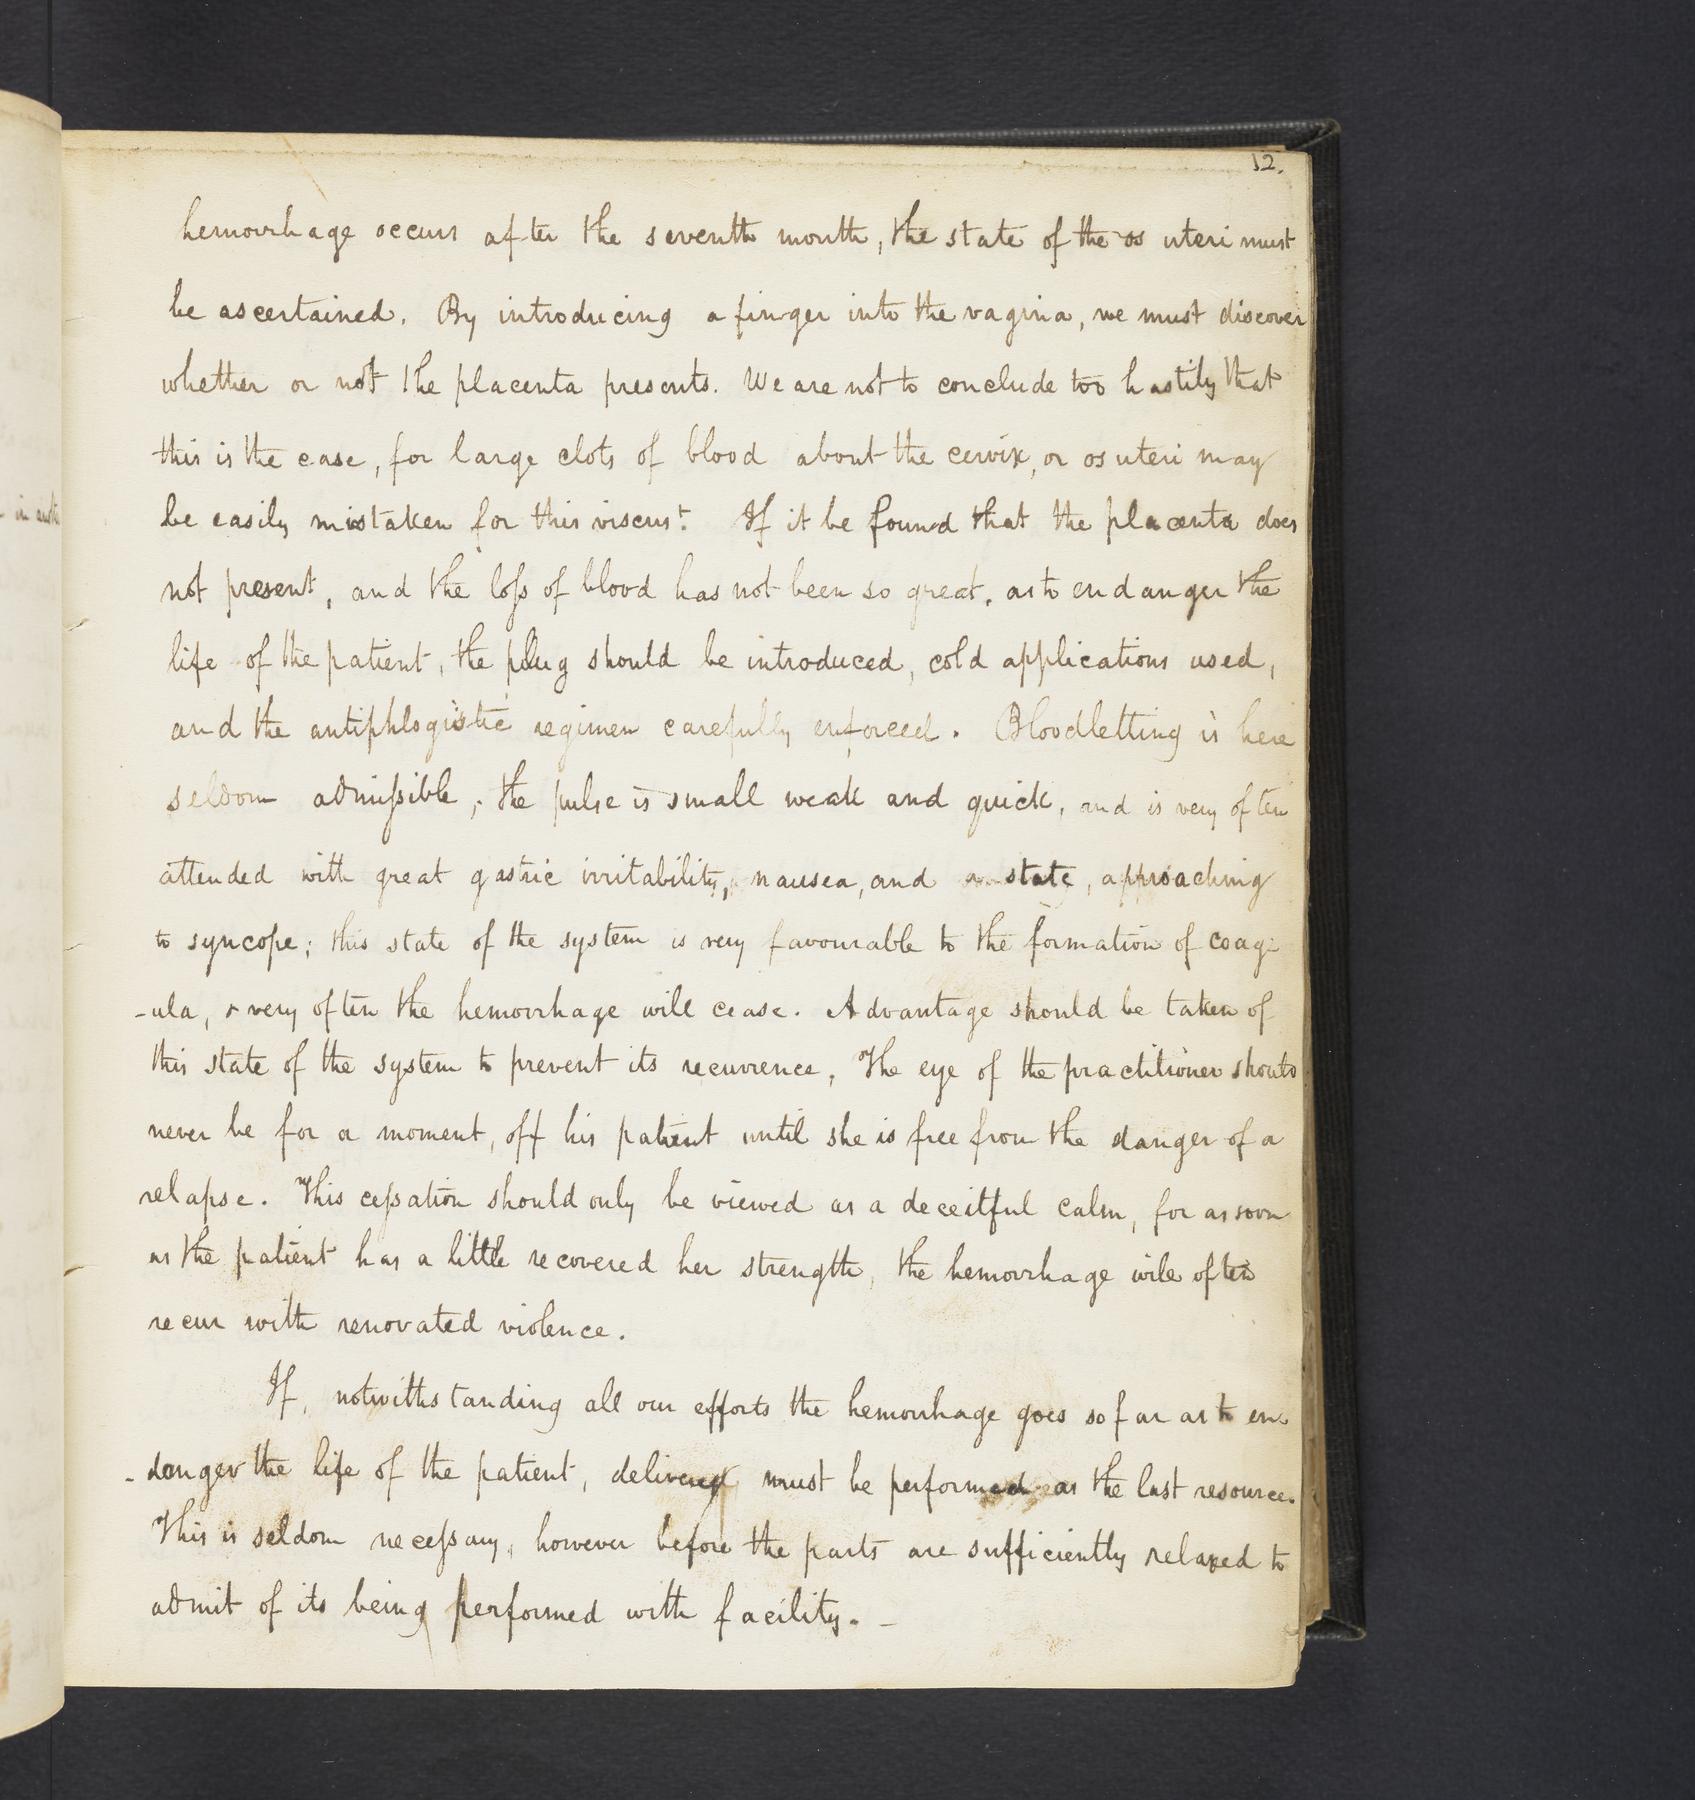 12.
hemorrhage occurs after the seventh month, the state of the os uteri must
be ascertained. By introducing a finger into the vagina, we must discover
whether or not the placenta presents. We are not to conclude too hastily that
this is the case, for large clots of blood about the cervix, or os uteri may
be easily mistaken for this viscus. If it be found that the placenta does
not present, and the loſs of blood has not been so great, as to endanger the
life of the patient, the plug should be introduced, cold applications used,
and the antiphlogistic regimen carefully enforced. Bloodletting is here
seldom admiſsible, the pulse is small weak and quick, and is very often
attended with great gastric irritability, nausea, and a state, approaching
to syncope; this state of the system is very favourable to the formation of coag-
-ula, & very often the hemorrhage will cease. Advantage should be taken of
this state of the system to prevent its recurrence. The eye of the practitioner should
never be for a moment, off his patient until she is free from the danger of a
relapse. This ceſsation should only be viewed as a deceitful calm, for as soon
as the patient has a little recovered her strength, the hemorrhage will often
recur with renovated violence.
If, notwithstanding all our efforts the hemorrhage goes so far as to en
-danger the life of the patient, delivery must be performed as the last resource.
This is seldom neceſsary, however before the parts are sufficiently relaxed to
admit of its being performed with facility. -